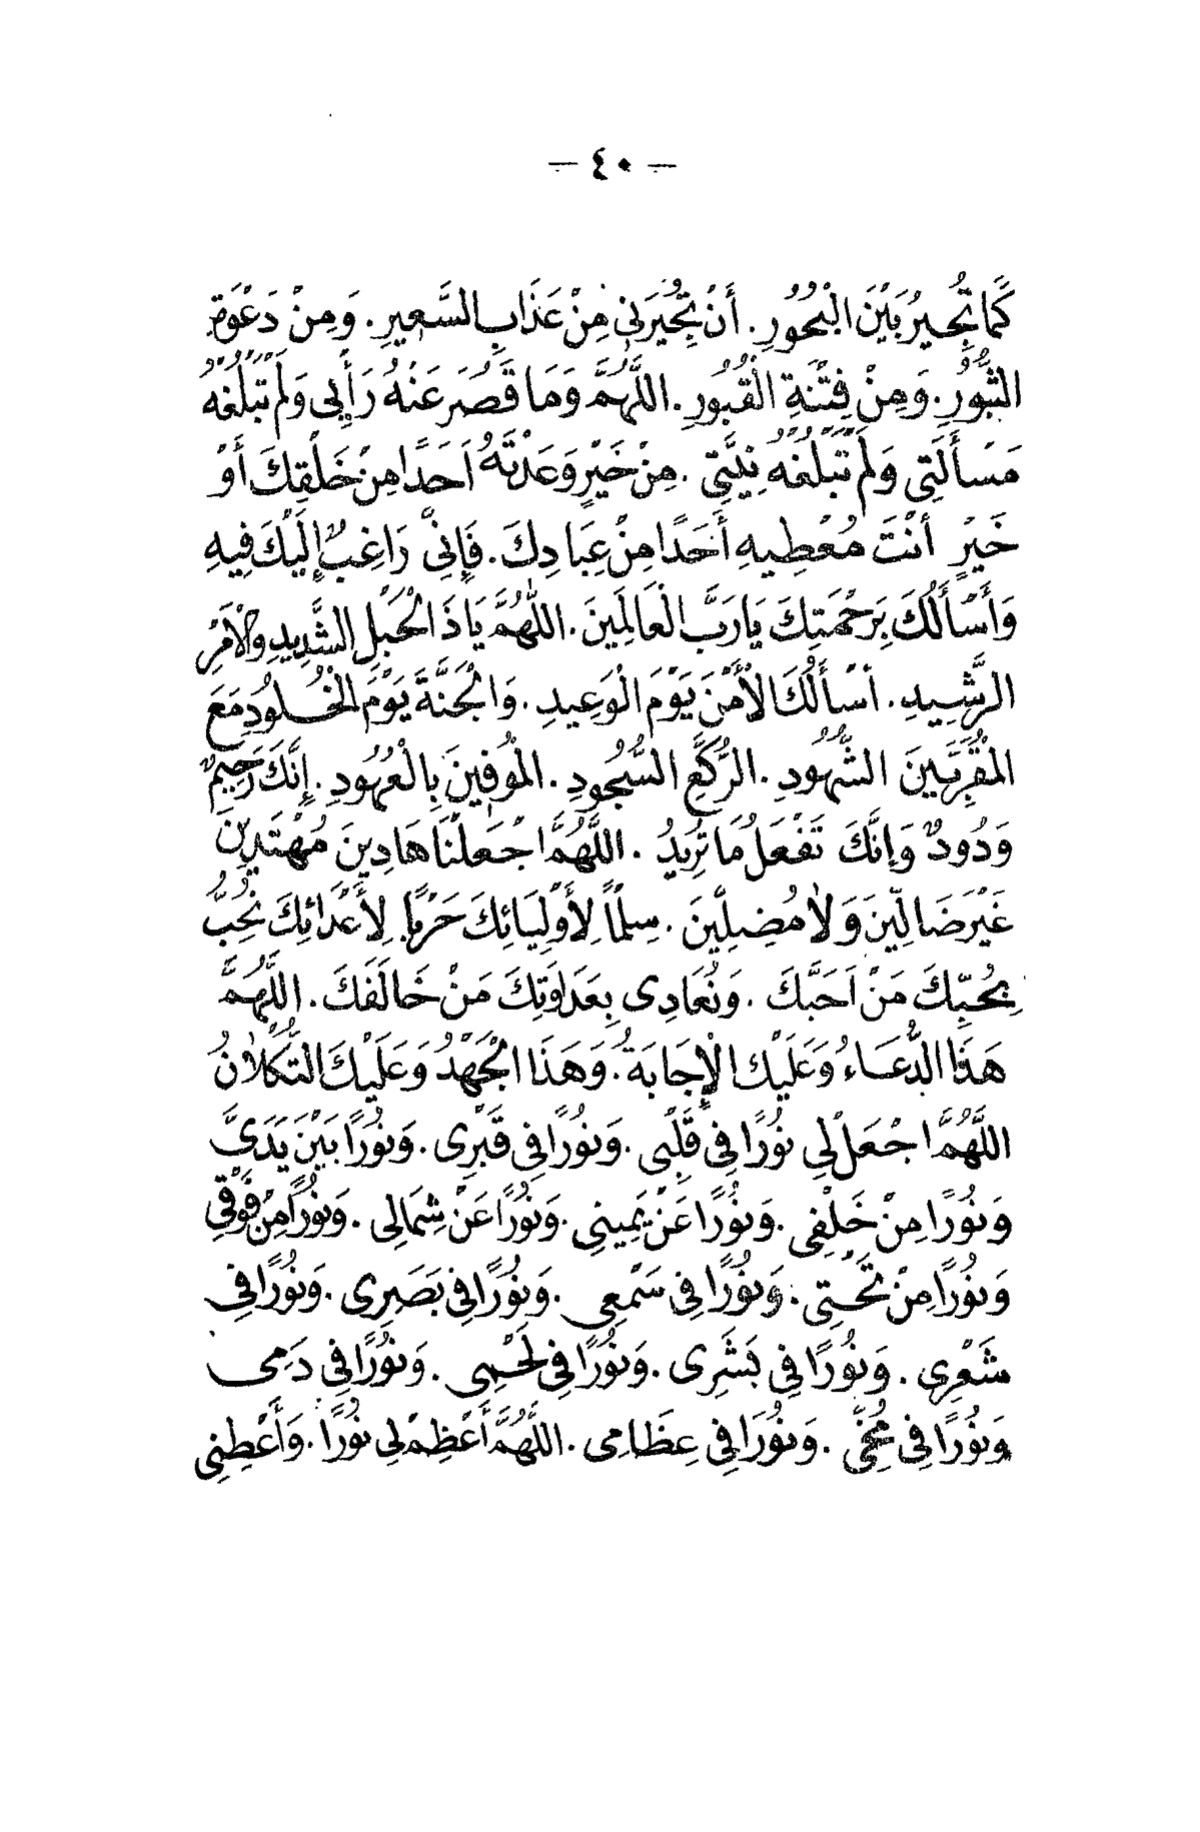 — ٤٠ —
كَمَا تُجِيرُ بَيْنَ الْبُحُورِ. أَنْ تُجِيرَنِى مِنْ عَذَابِ السَّعِيرِ. وَمِنْ دَعْوَةِ
الثُّبُورِ. وَمِنْ فِتْنَةِ الْقُبُورِ. اللَّهُمَّ وَمَا قَصُرَ عَنْهُ رَأْيِى وَلَمْ تَبْلُغْهُ
مَسْأَلَتِى وَلَمْ تَبْلُغْهُ نِيَّتِى. مِنْ خَيْرٍ وَعَدْتَهُ اَحَدًا مِنْ خَلْقِكَ أَوْ
خَيْرٍ أَنْتَ مُعْطِيهِ أَحَدًا مِنْ عِبَادِكَ. فَإِنِّى رَاغِبٌ إِلَيْكَ فِيهِ
وَأَسْأَلُكَ بِرَحْمَتِكَ يَارَبَّ الْعَالَمِينَ. اللَّهُمَّ يَاذَا الْحَبْلِ الشَّدِيدِ وَالْأَمْرِ
الرَّشِيدِ. أَسْأَلُكَ الْأَمْنَ يَوْمَ الْوَعِيدِ. وَالْجَنَّةَ يَوْمَ الْخُلُودِ مَعَ
الْمُقَرَّبِينَ الشُّهُودِ. الرُّكَّعِ السُّجُودِ. الْمُوفِينَ بِالْعُهُودِ. إِنَّكَ رَحِيمٌ
وَدُودٌ وَإِنَّكَ تَفْعَلُ مَا تُرِيدُ. اللَّهُمَّ اجْعَلْنَا هَادِينَ مُهْتَدِينَ
غَيْرَ ضَالِّينَ وَلَا مُضِلِّينَ. سِلْمًا لِأَوْلِيَائِكَ حَرْبًا لِأَعْدَائِكَ نُحِبُّ
بِحُبِّكَ مَنْ اَحَبَّكَ. وَنُعَادِى بِعَدَاوَتِكَ مَنْ خَالَفَكَ. اللَّهُمَّ
هَذَا الدُّعَاءُ وَعَلَيْكَ الْإِجَابَةُ. وَهَذَا الْجَهْدُ وَعَلَيْكَ التُّكْلَانُ
اللَّهُمَّ اجْعَلْ لِى نُورًا فِى قَلْبِى. وَنُورًا فِى قَبْرِى. وَنُورًا بَيْنَ يَدَىَّ
وَنُورًا مِنْ خَلْفِى. وَنُورًا عَنْ يَمِينِى. وَنُورًا عَنْ شِمَالِى. وَنُورًا مِنْ فَوْقِى
وَنُورًا مِنْ تَحْتِى. وَنُورًا فِى سَمْعِى. وَنُورًا فِى بَصَرِى. وَنُورًا فِى
شَعْرِى. وَنُورًا فِى بَشَرِى. وَنُورًا فِى لَحْمِى. وَنُورًا فِى دَمِى
وَنُورًا فِى مُخِّى. وَنُورًا فِى عِظَامِى. اللَّهُمَّ أَعْظِمْ لِى نُورًا. وَأَعْطِنِى